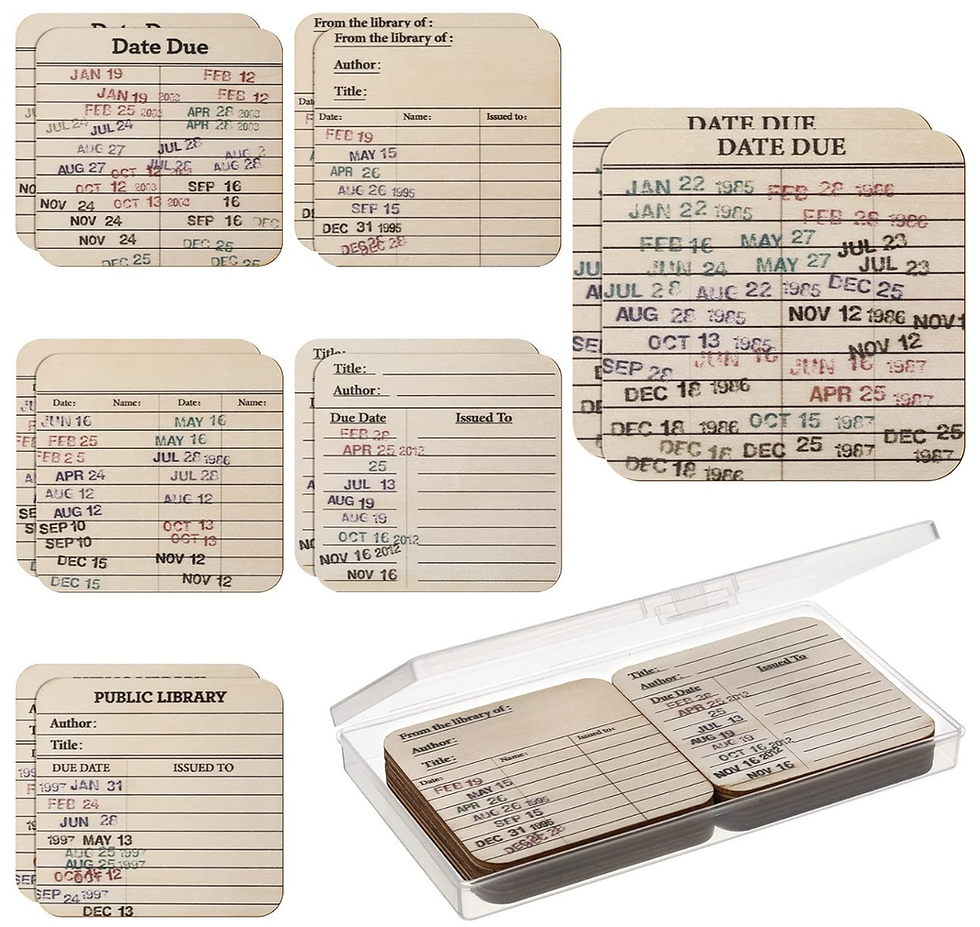 Date Due
JAN 19 FEB 12
JAN 19 2003 FEB 12
FEB 25 2003 APR 28 2003
JUL 24 JUL 24 APR 28 2003
AUG 27 JUL 28 AUG 2
AUG 27 OCT 12 2003 JUL 28 AUG 28
OCT 12 2003 SEP 16
NOV 24 OCT 13 2003 16
NOV 24 SEP 16 DEC
NOV 24 DEC 25
DEC 25 DEC 25
From the library of:
From the library of:
Author:
Title:
Date: Name: Issued to:
FEB 19
MAY 15
APR 26
AUG 26 1995
SEP 15
DEC 31 1995
DATE DUE
DATE DUE
JAN 22 1985 FEB 28 1986
JAN 22 1985 FEB 28 1986
FEB 16 MAY 27 JUL 23
JUN 24 MAY 27 JUL 23
JUL 28 AUG 22 1985 DEC 25
AUG 28 1985 NOV 12 1986 NOV 1
OCT 13 1985 NOV 12
SEP 28 JUN 16 JUN 16 1987
DEC 18 1986 APR 25 1987
DEC 18 1986 OCT 15 1987 DEC 25
DEC 18 DEC 25 1987 1987
DEC 18 1986
Date: Name: Date: Name:
JUN 16 MAY 16
FEB 25 MAY 16
FEB 25 JUL 28 1986
APR 24 JUL 28
AUG 12 AUG 12
SEP 10 OCT 13
SEP 10 OCT 13
DEC 15 NOV 12
DEC 15 NOV 12
Title:
Title:
Author:
Due Date Issued To
FEB 28
APR 25 2012
25
JUL 13
AUG 19
AUG 19
OCT 16 2012
NOV 16 2012
NOV 16
PUBLIC LIBRARY
Author:
Title:
DUE DATE ISSUED TO
1997 JAN 31
FEB 24
JUN 28
1997 MAY 13
AUG 25 1997
AUG 25 1997
OCT 12
SEP 24 1997
DEC 13
From the library of:
Author:
Title:
Date: Name: Issued to:
FEB 19
MAY 15
APR 26
AUG 26 1995
SEP 15
DEC 31 1995
Title:
Author:
Due Date Issued To
FEB 28
APR 25 2012
25
JUL 13
AUG 19
AUG 19
OCT 16 2012
NOV 16 2012
NOV 16